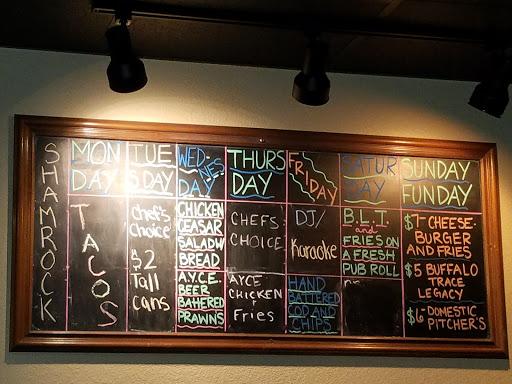 SHAMROCK
MON
DAY
TACOS
TUE
SDAY
chef's
choice
$2
Tall
cans
WED-
NES
DAY
CHICKEN
CEASAR
SALADW
BREAD
A.Y.C.E.
BEER
BATHERED
PRAWNS
THURS
DAY
CHEFS
CHOICE
AYCE
CHICKEN
+
Fries
FRI
DAY
DJ/
Karaoke
HAND
BATTERED
COD AND
CHIPS
SATUR
DAY
B.L.T.
and
FRIES ON
A FRESH
PUB ROLL
SUNDAY
FUNDAY
$7-CHEESE-
BURGER
AND FRIES
$5 BUFFALO
TRACE
LEGACY
$6-DOMESTIC
PITCHER'S